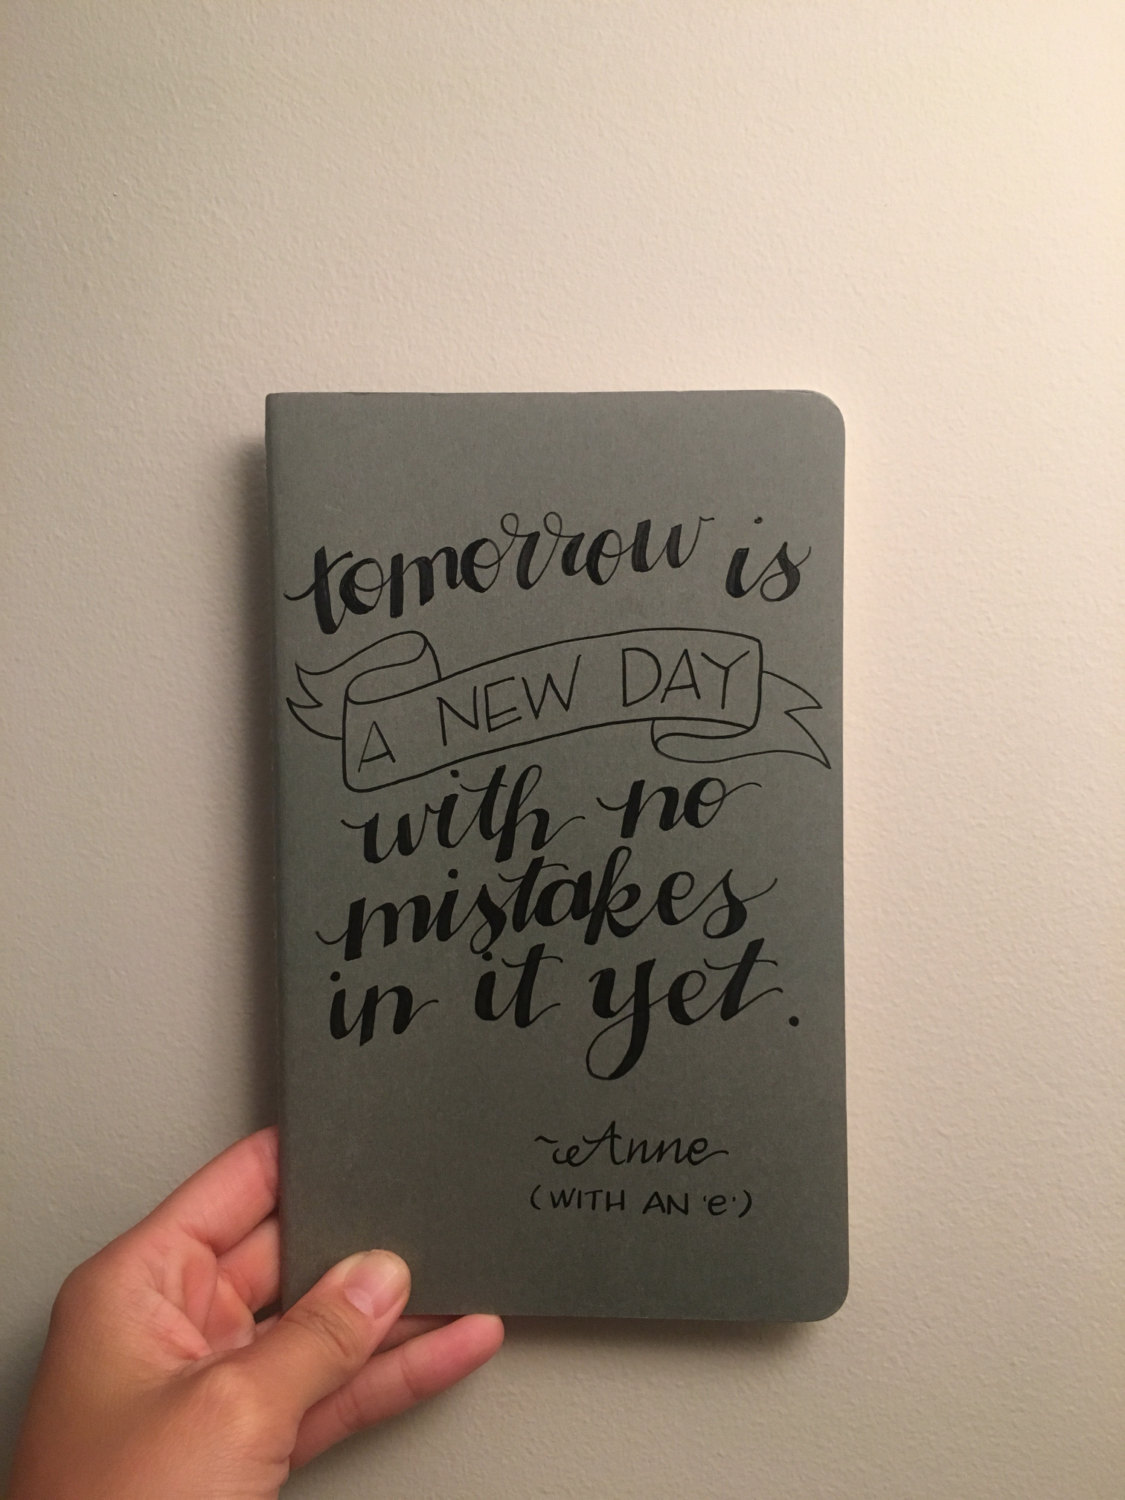 tomorrow is
A NEW DAY
with no
mistakes
in it yet.
~Anne
(WITH AN 'e')